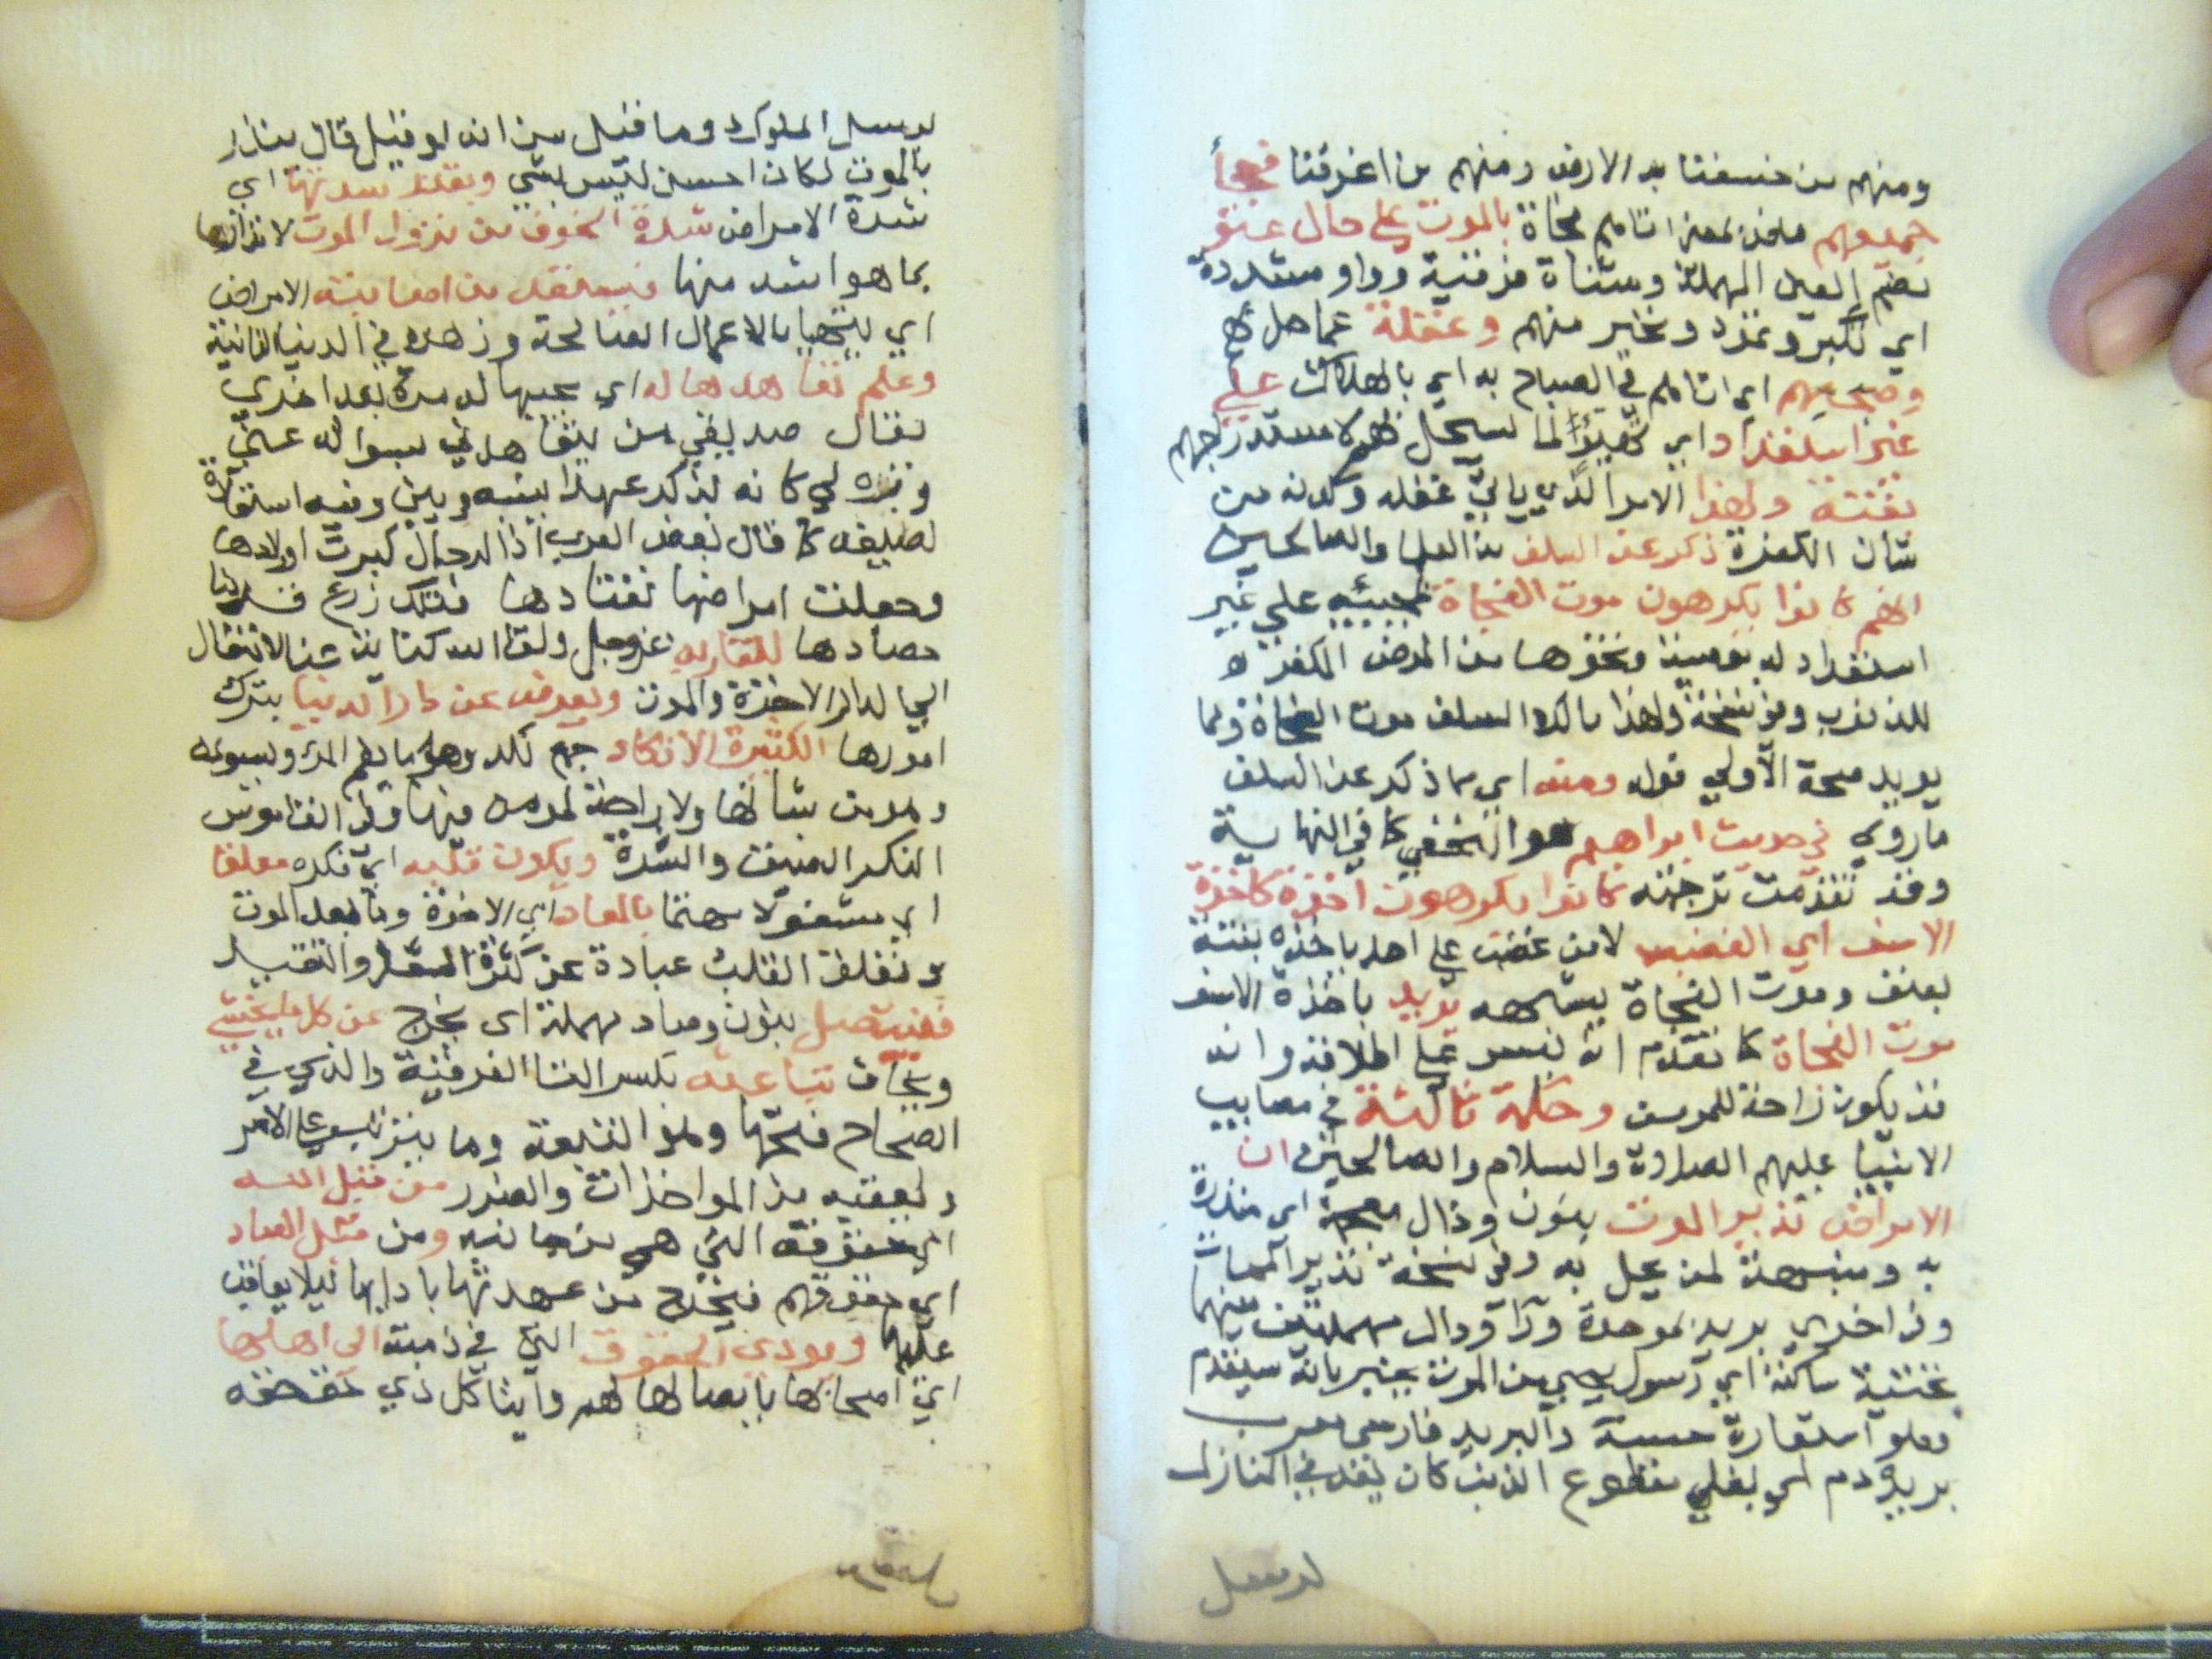 ومنهم من خسفنا به الارض ومنهم من اغرقنا فجأ
جميعهم بالموت على حال عتو
بضم العين المهملة ومثناة فوقية وواو مشددة
اي تكبر وتمرد وتجبر منهم وغفلة عما حل بهم
وصبحهم اي اتاهم في الصباح به اي بالهلاك على
غير استعداد اي لما
بغتة ولهذا الامر الذي ياتي غفلة وكونه من
شان الكفرة ذكر عن السلف من العلما والصالحين
انهم كانوا يكرهون موت الفجاة لمجيئه على غير
استعداد له بوصية ونحوها من المرض المكفر
للذنوب وفي نسخة ولهذا ما كره السلف موت الفجاة ومما
يويد صحة الاولى قوله ومنه اي مما ذكر عن السلف
ما روي في حديث ابراهيم هو النخعي كما في النهاية
وقد تقدمت ترجمته كانوا يكرهون اخذة كاخذة
الاسف اي الغضب لان من غضب على احد ياخذه بغتة
بعنف وموت الفجاة يشبهه يريد باخذة الاسف
موت الفجاة كما تقدم انه ليس على اطلاقه وانه
قد يكون راحة للمومن وحكمة ثالثة في مصايب
الانبيا عليهم الصلاة والسلام والصالحين ان
الامراض نذير الموت بنون وذال معجمة اي منذرة
به ومنبهة لمن تحل به وفي نسخة نذير الممات
وفي اخرى بريد بموحدة ورا ودال مهملتين بينهما
تحتية ساكنة اي رسول يجي من الموت يخبر بانه سيقدم
وهو استعارة حسنة والبريد فارسي معرب
بريده دم اي بغل مقطوع الذنب كان يعد في المنازل
لرسل
لرسل الملوك وما قيل من انه لو قيل قال ينذر
بالموت لكان احسن ليس بشي وبقدر شدتها اي
شدة الامراض شدة الخوف من نزول الموت لانذارها
بما هو اشد منها فيستعد من اصابته الامراض
اي يتهيا بالاعمال الصالحة وزهده في الدنيا الفانية
وعلم تعاهدها له اي مجيها له مرة بعد اخرى
يقال صديقي من يتعاهدني بسواله عني
كانه يذكر عهدا بينه وبين وفيه استعارة
لطيفة كما قال بعض العرب اذا الرجال كبرت اولادها
وجعلت امراضها تعتادها فتلك زرع قد دنا
حصادها للقا ربه عز وجل ولقا الله كناية عن الانتقال
الى الدار الاخرة والموت ويعرض عن دار الدنيا بترك
امورها الكثيرة الانكاد جمع نكد وهو ما يهم المرء ويسوءه
ومن شانها ولا راحة لمومن فيها وفي القاموس
النكد الضيق والشدة ويكون قلبه اي فكره معلقا
اي مشغولا مهتما بالمعاد اي الاخرة وما بعد الموت
وتعلق القلب عبارة عن كثرة
فيتنصل بنون وصاد مهملة اي يخرج عن كل ما يخشى
ويخاف تباعته بكسر التا الفوقية والذي في
الصحاح فتحها وهو التبعة وما يترتب على الامر
وتعقبه من المواخذات والضرر من قبل الله
اي حقوقه التي هي من جانبه ومن قبل العباد
اي حقوقهم فيخرج من عهدتها بادايها ليلا يعاقب
عليها ويودي الحقوق التي في ذمته الى اهلها
اي اصحابها بايصالها لهم وايتا كل ذي حق حقه